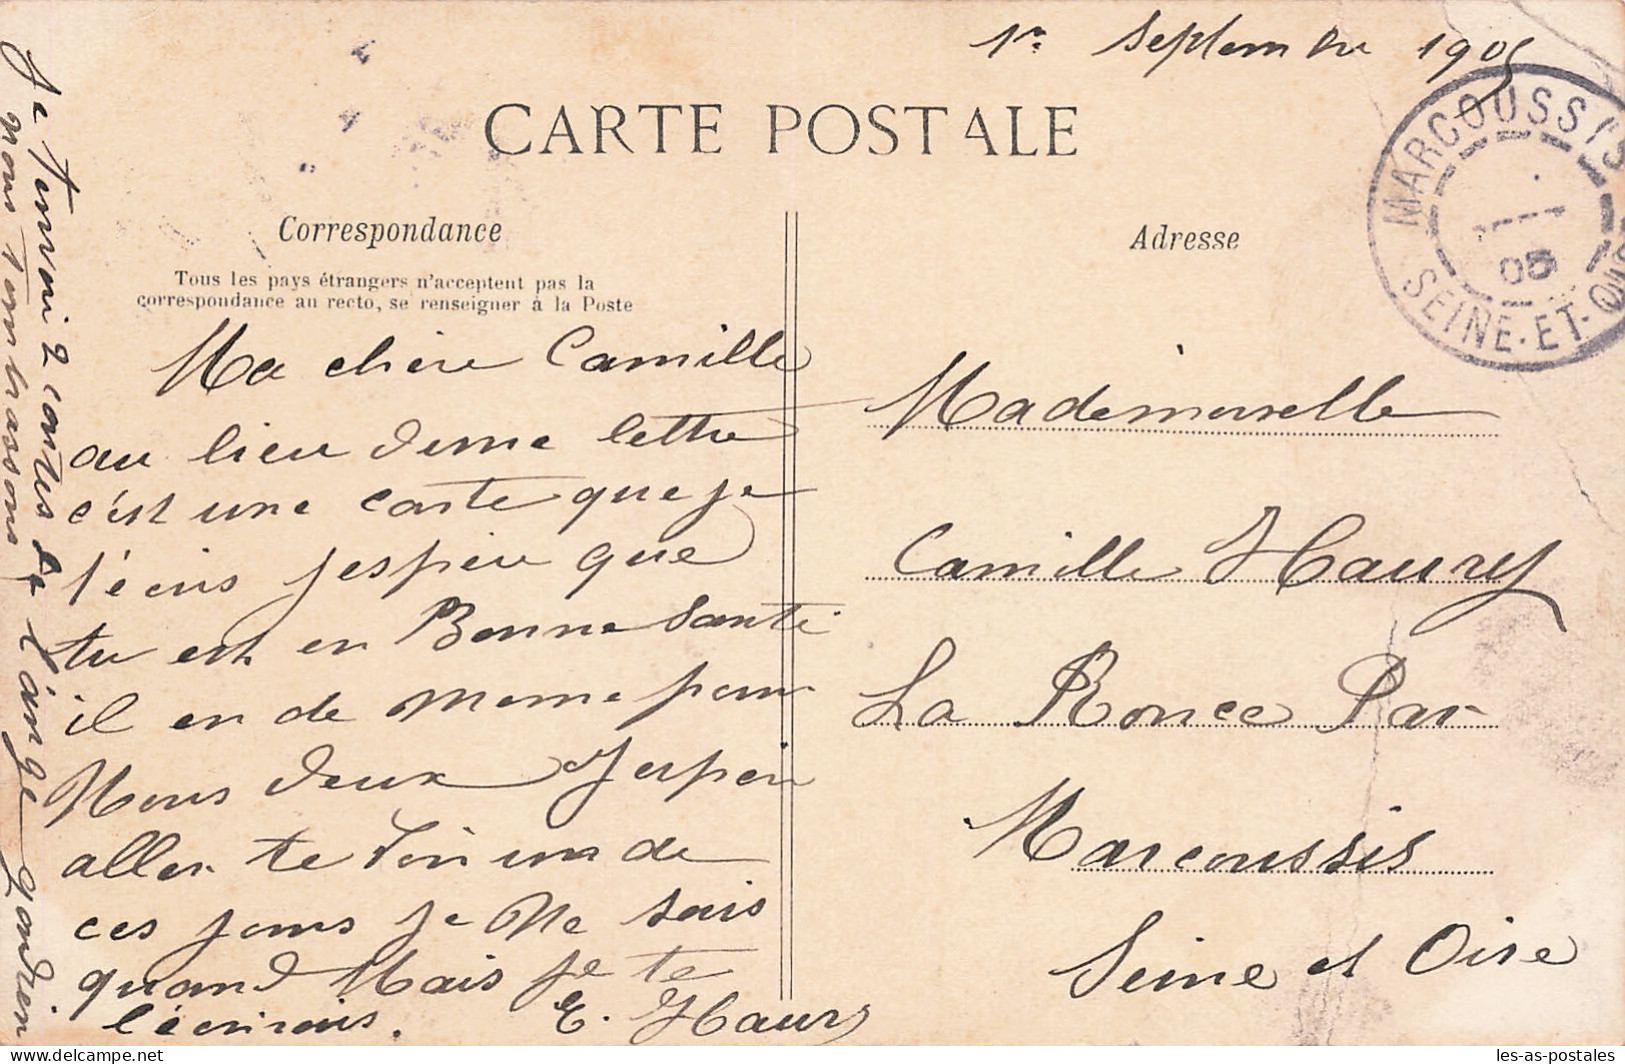 1er Septembre 1905
CARTE POSTALE
MARCOUSSIS
05
SEINE-ET-OISE
Correspondance
Tous les pays étrangers n'acceptent pas la
correspondance au recto, se renseigner à la Poste
Ma chère Camille
au lieu d'une lettre
c'est une carte que je
t'écris j'espère que
tu est en Bonne Santé
il en de meme pour
Nous deux J'espère
aller te voir un de
ces jours je Ne sais
quand Mais je te
l'écrirais.
E. Haury
Je t'envoi 2 cartes de l'ange gardien
nous t'embrasons
Adresse
Mademoiselle
Camille Haury
La Ronce Par
Marcoussis
Seine et Oise
les-as-postales
© delcampe.net